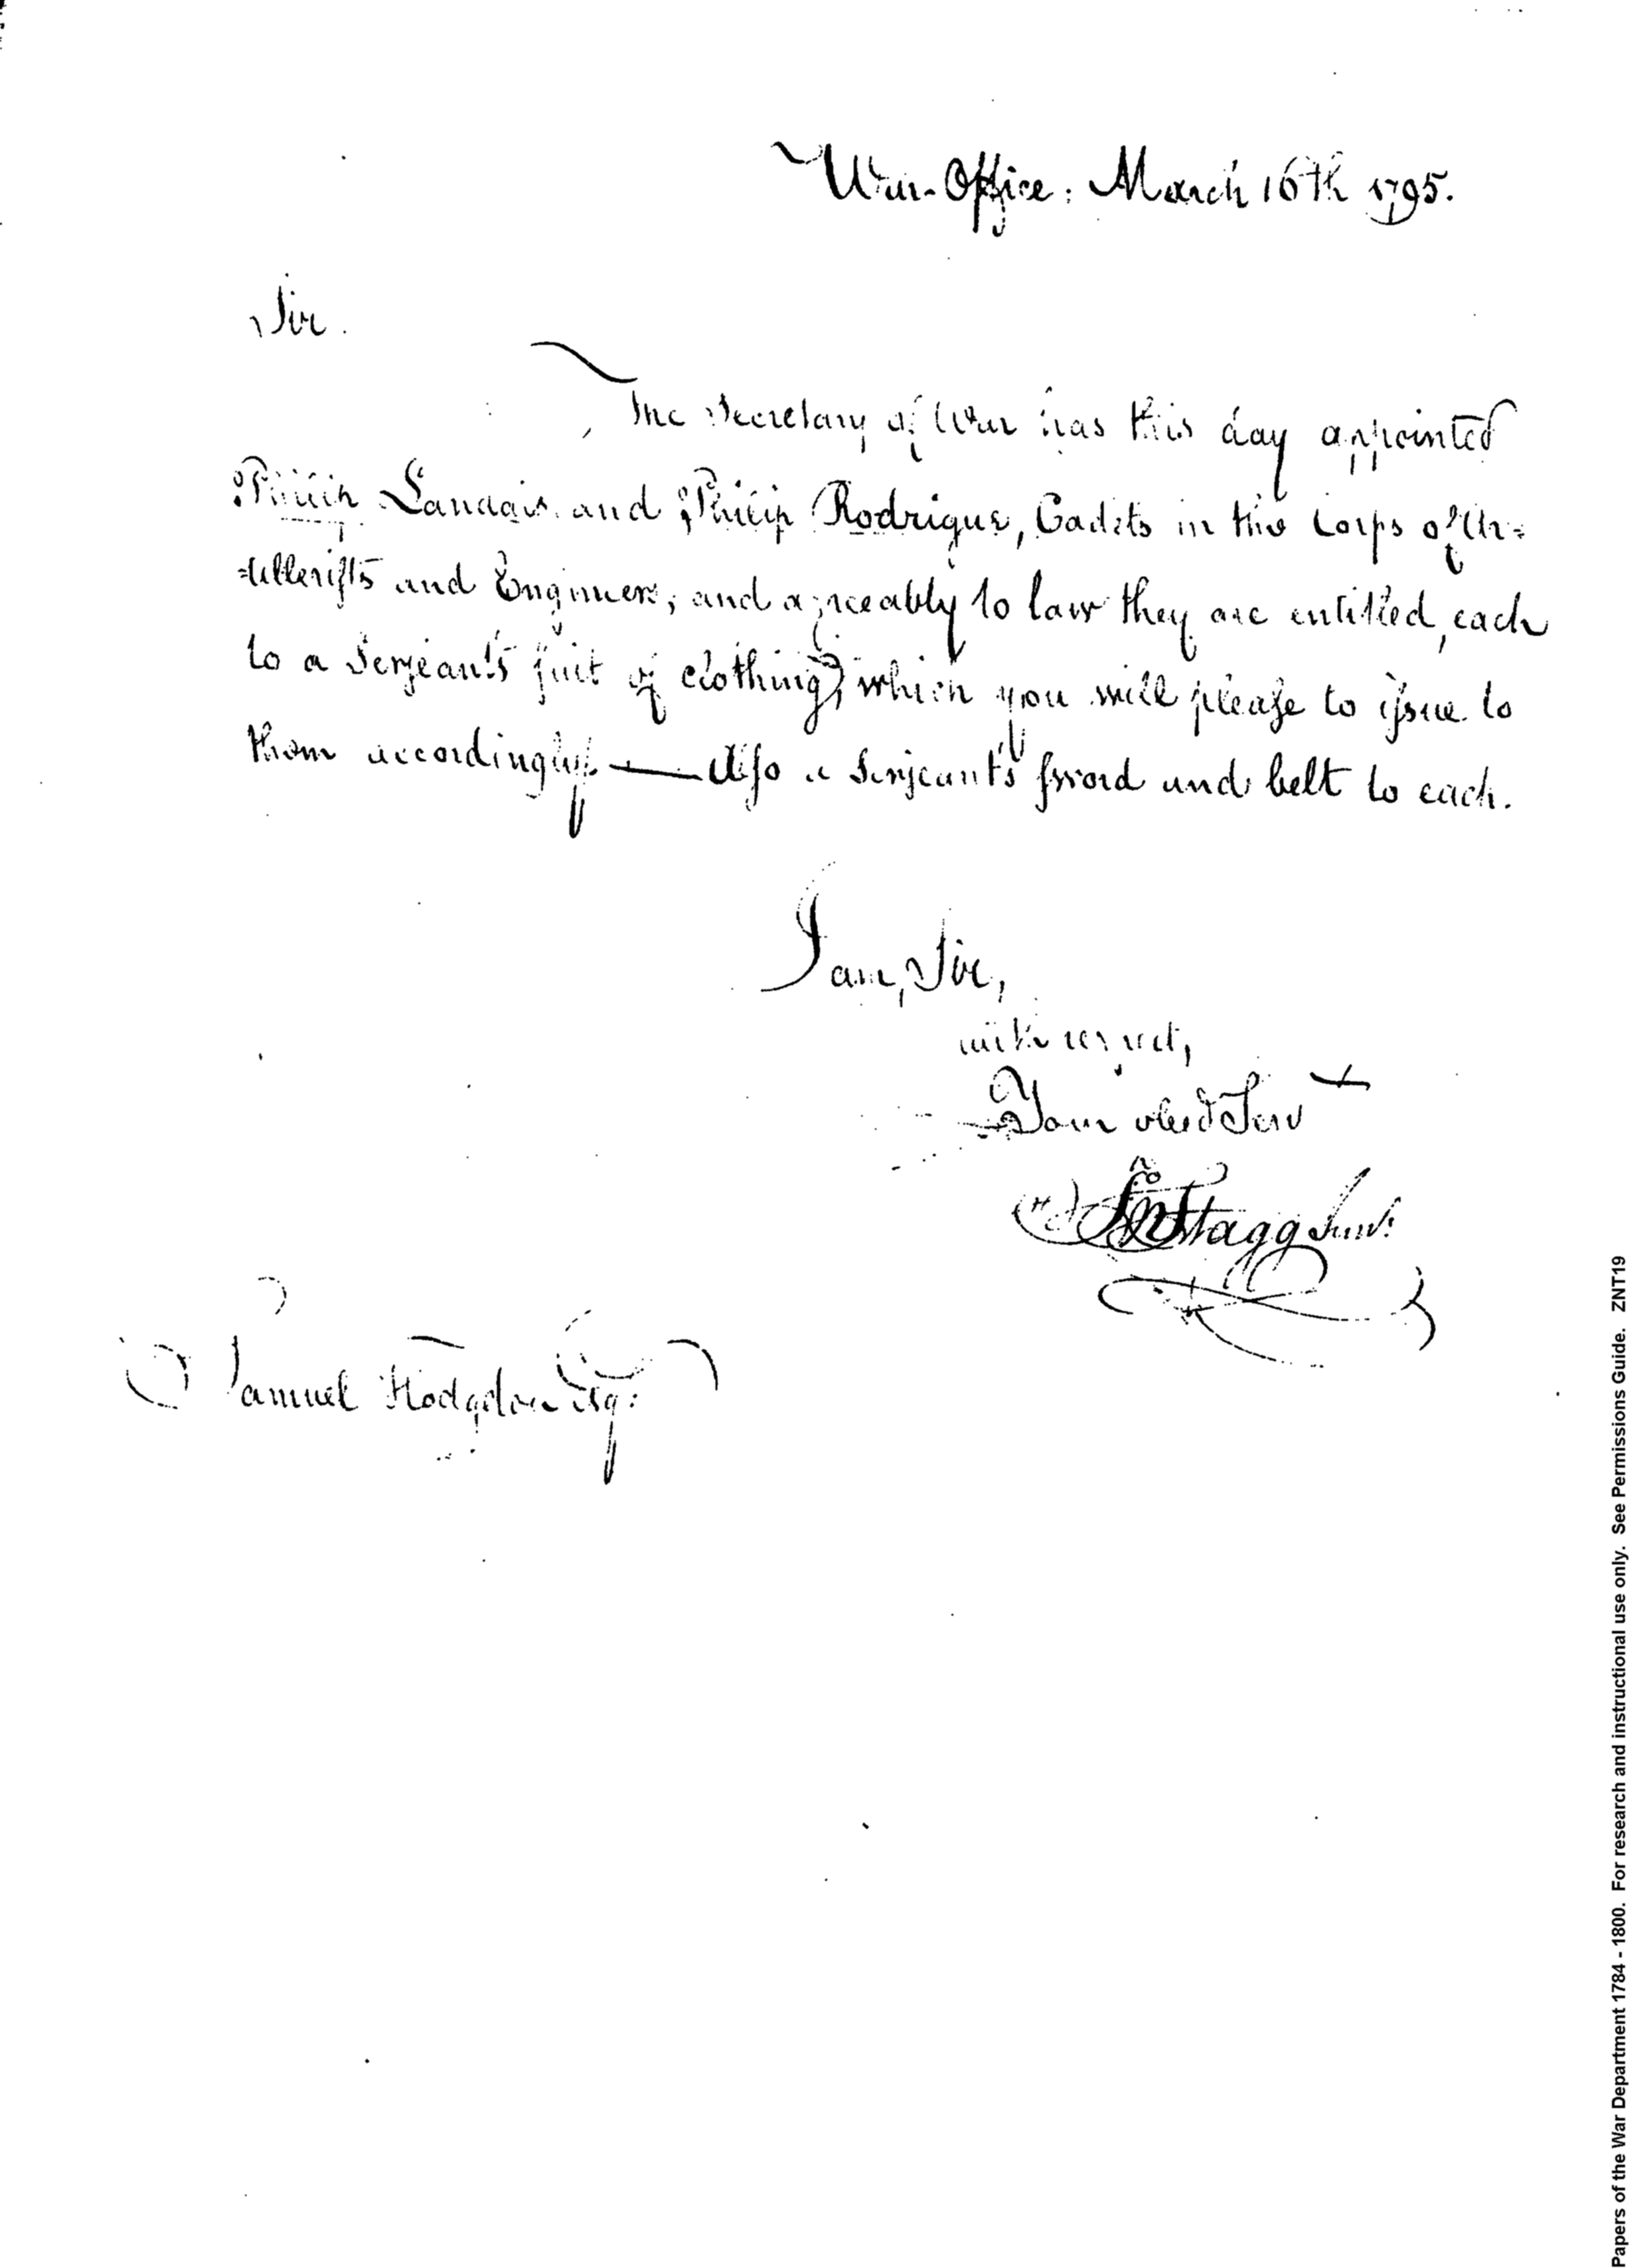 War-Office: March 16th 1795.
Sir.
The Secretary of War has this day appointed
Philip Landais and Philip Rodrigue, Cadets in the Corps of Ar=
=tillerists and Engineers, and agreeably to law they are entitled, each
to a Serjeant's suit of clothing, which you will please to issue to
them accordingly. — Also a Serjeant's sword and belt to each.
I am, Sir,
with respect,
Your obed Servt
Jno Stagg Junr.
Samuel Hodgdon Esq:
Papers of the War Department 1784 - 1800. For research and instructional use only. See Permissions Guide. ZNT19